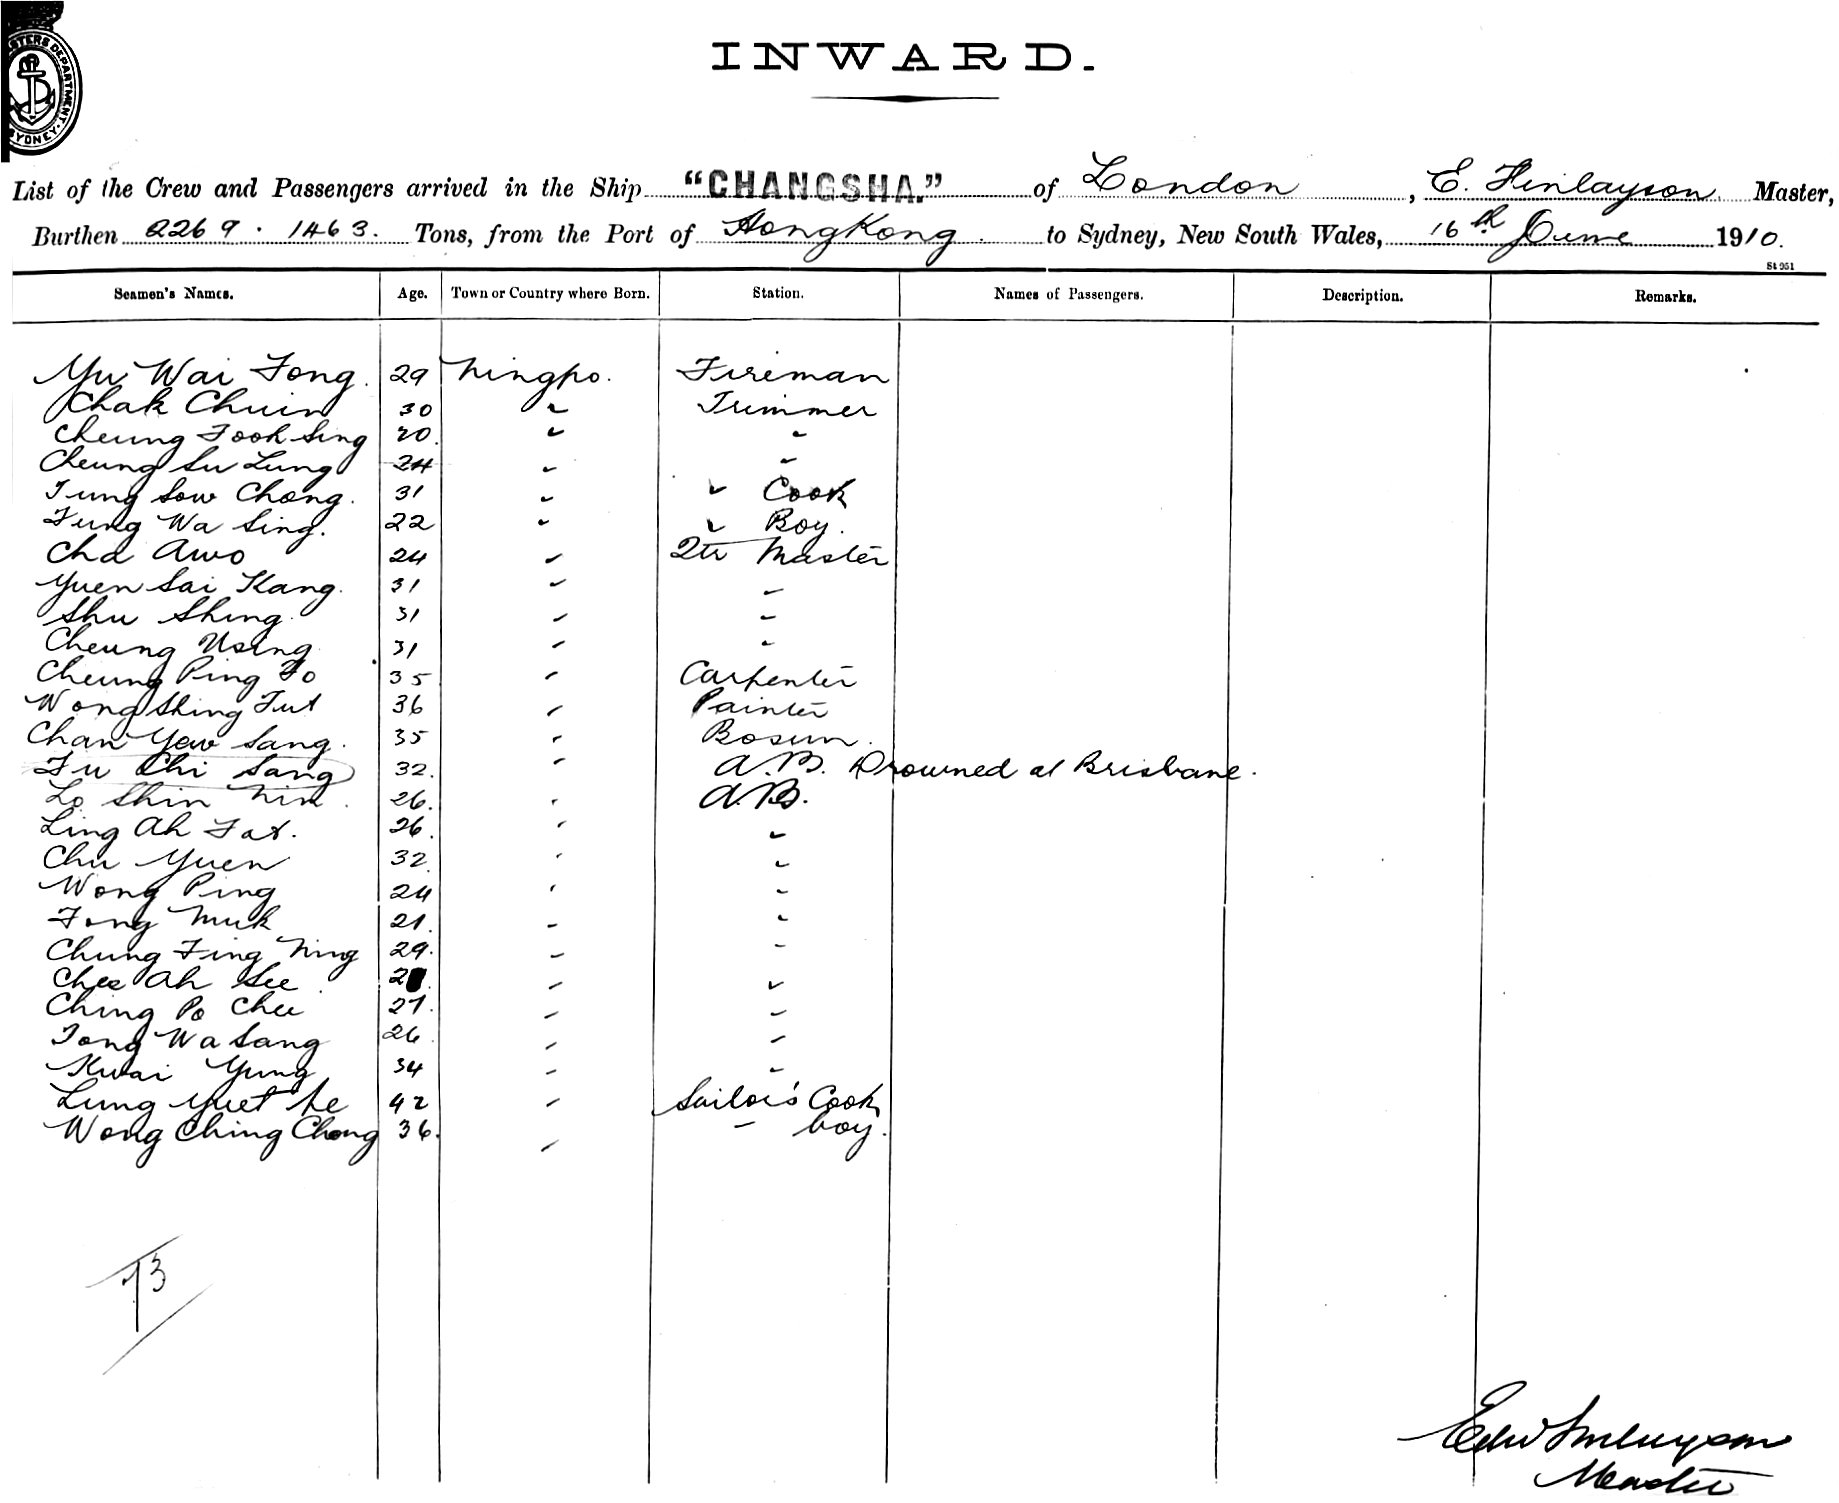 MASTERS DEPARTMENT. SYDNEY.
INWARD.
List of the Crew and Passengers arrived in the Ship "CHANGSHA." of London, E. Finlayson. Master,
Burthen 2269 . 1463. Tons, from the Port of HongKong. to Sydney, New South Wales, 16th June 1910.
St 951
Seamen's Names. Age. Town or Country where Born. Station. Names of Passengers. Description. Remarks.
Yu Wai Fong. 29 Ningpo. Fireman
Chak Chuin 30 " Trimmer
Cheung Fook Sing 20. " "
Cheung Su Lung 24 " "
Tung Sow Chong. 31 " " Cook
Fung Wa Sing. 22 " " Boy.
Cha Awo 24 " Qtr Master
Yuen Sai Kang. 31 " "
Shu Shing. 31 " "
Cheung Using. 31 " "
Cheung Ping Fo 35 " Carpenter
Wong Shing Fut 36 " Painter
Chan Yew Sang. 35 " Bosun.
Fu Chi Sang 32. " A.B. Drowned at Brisbane.
Lo Shin Nin. 26. " A.B.
Ling Ah Fat. 26. " "
Chu Yuen 32. " "
Wong Ping 24 " "
Fong Muk 21. " "
Chung Fing Ning 29. " "
Chee Ah See " "
Ching Po Chee 27. " "
Tong Wa Sang 26 " "
Kwai Yung 34 " "
Lung Yuet He 42 " Sailor's Cook
Wong Ching Chong 36. " " boy.
73
Edw Finlayson
Master